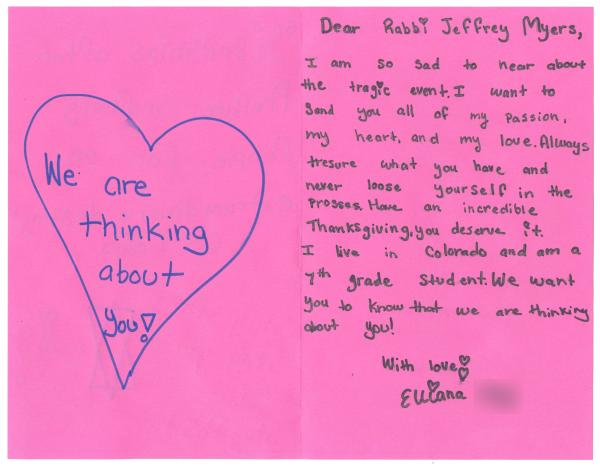 We are
thinking
about
you!
Dear Rabbi Jeffrey Myers,
I am so sad to hear about
the tragic event. I want to
send you all of my passion,
my heart, and my love. Always
tresure what you have and
never loose yourself in the
prosses. Have an incredible
Thanksgiving, you deserve it.
I live in Colorado and am a
7th grade student. We want
you to know that we are thinking
about you!
With love
Elliana